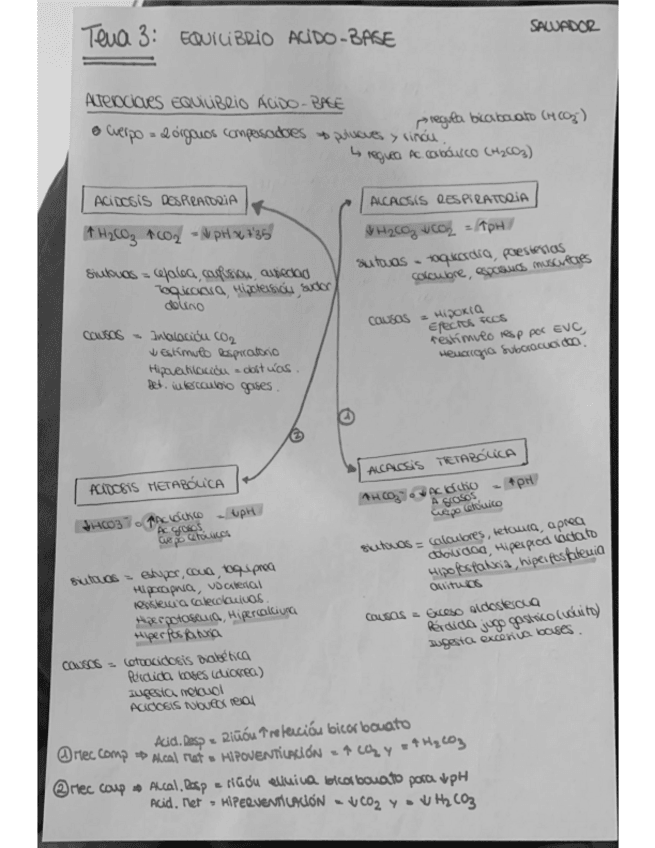 Tema 3: EQUILIBRIO ACIDO-BASE
SALVADOR
ALTERACIONES EQUILIBRIO ÁCIDO-BASE
Cuerpo = 2 órganos compensadores ⇒ pulmones y riñón
→ regula bicarbonato (HCO3-)
↳ regula Ac. carbónico (H2CO3)
ACIDOSIS RESPIRATORIA
↑H2CO3 ↑CO2 = ↓pH < 7'35
Síntomas = Cefalea, confusión, ansiedad
Taquicardia, Hipotensión, sudor
delirio
CAUSAS = Inhalación CO2
↓ estímulo Respiratorio
Hipoventilación = obst vías.
intercambio gases.
ALCALOSIS RESPIRATORIA
↓H2CO3 ↓CO2 = ↑pH
Síntomas = Taquicardia, parestesias
calambre, espasmos musculares
CAUSAS = HIPOXIA
Efectos
↑estímulo resp por EVC,
Hemorragia Subaracnoidea.
①
②
ACIDOSIS METABÓLICA
↓HCO3- o ↑Ac láctico = ↓pH
Ac grasos
Cuerpo Cetónicos
Síntomas = estupor, coma, taquipnea
Hipocapnia, VD arterial
resistencia catecolaminas.
Hiperpotasemia, Hipercalciuria
Hiperfosfaturia
CAUSAS = Cetoacidosis Diabética
Pérdida bases (diarrea)
Ingesta metanol
Acidosis tubular renal
ALCALOSIS METABÓLICA
↑HCO3- o ↓Ac láctico = ↑pH
A grasos
Cuerpo Cetónico
Síntomas = Calambres, tetania, apnea
obnubilidad, Hiperprod lactato
Hipofosfaturia, hiperfosfatemia
arritmias
CAUSAS = Exceso aldosterona
Pérdida jugo gástrico (vómito)
Ingesta excesiva bases.
Acid. Resp = Riñón ↑ retención bicarbonato
① Mec Comp ⇒ Alcal Met = HIPOVENTILACIÓN = ↑ CO2 y = ↑ H2CO3
② Mec Comp ⇒ Alcal. Resp = riñón elimina bicarbonato para ↓ pH
Acid. Met = HIPERVENTILACIÓN = ↓ CO2 y = ↓ H2CO3